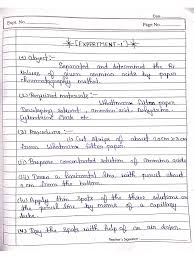 Date
Expt. No.
Page No.
* [EXPERIMENT-1] *
(1) Object:-
Separated and determined the Rf
values of given amino acids by paper
chromatography method.
(2) Required materials:-
Whatmann filter paper
Developing solvent, amino acid
(3) Procedure:-
(i) Cut strips of
Whatmann filter paper
(ii) Prepare concentrated solution of amino acids
(iii) Draw a horizontal line with pencil about
2 cm from the bottom.
(iv) Apply thin spots of the three solutions on
the pencil line by means of capillary
tube.
(v) Dry the spots with help of an air dryer.
Teacher's Signature